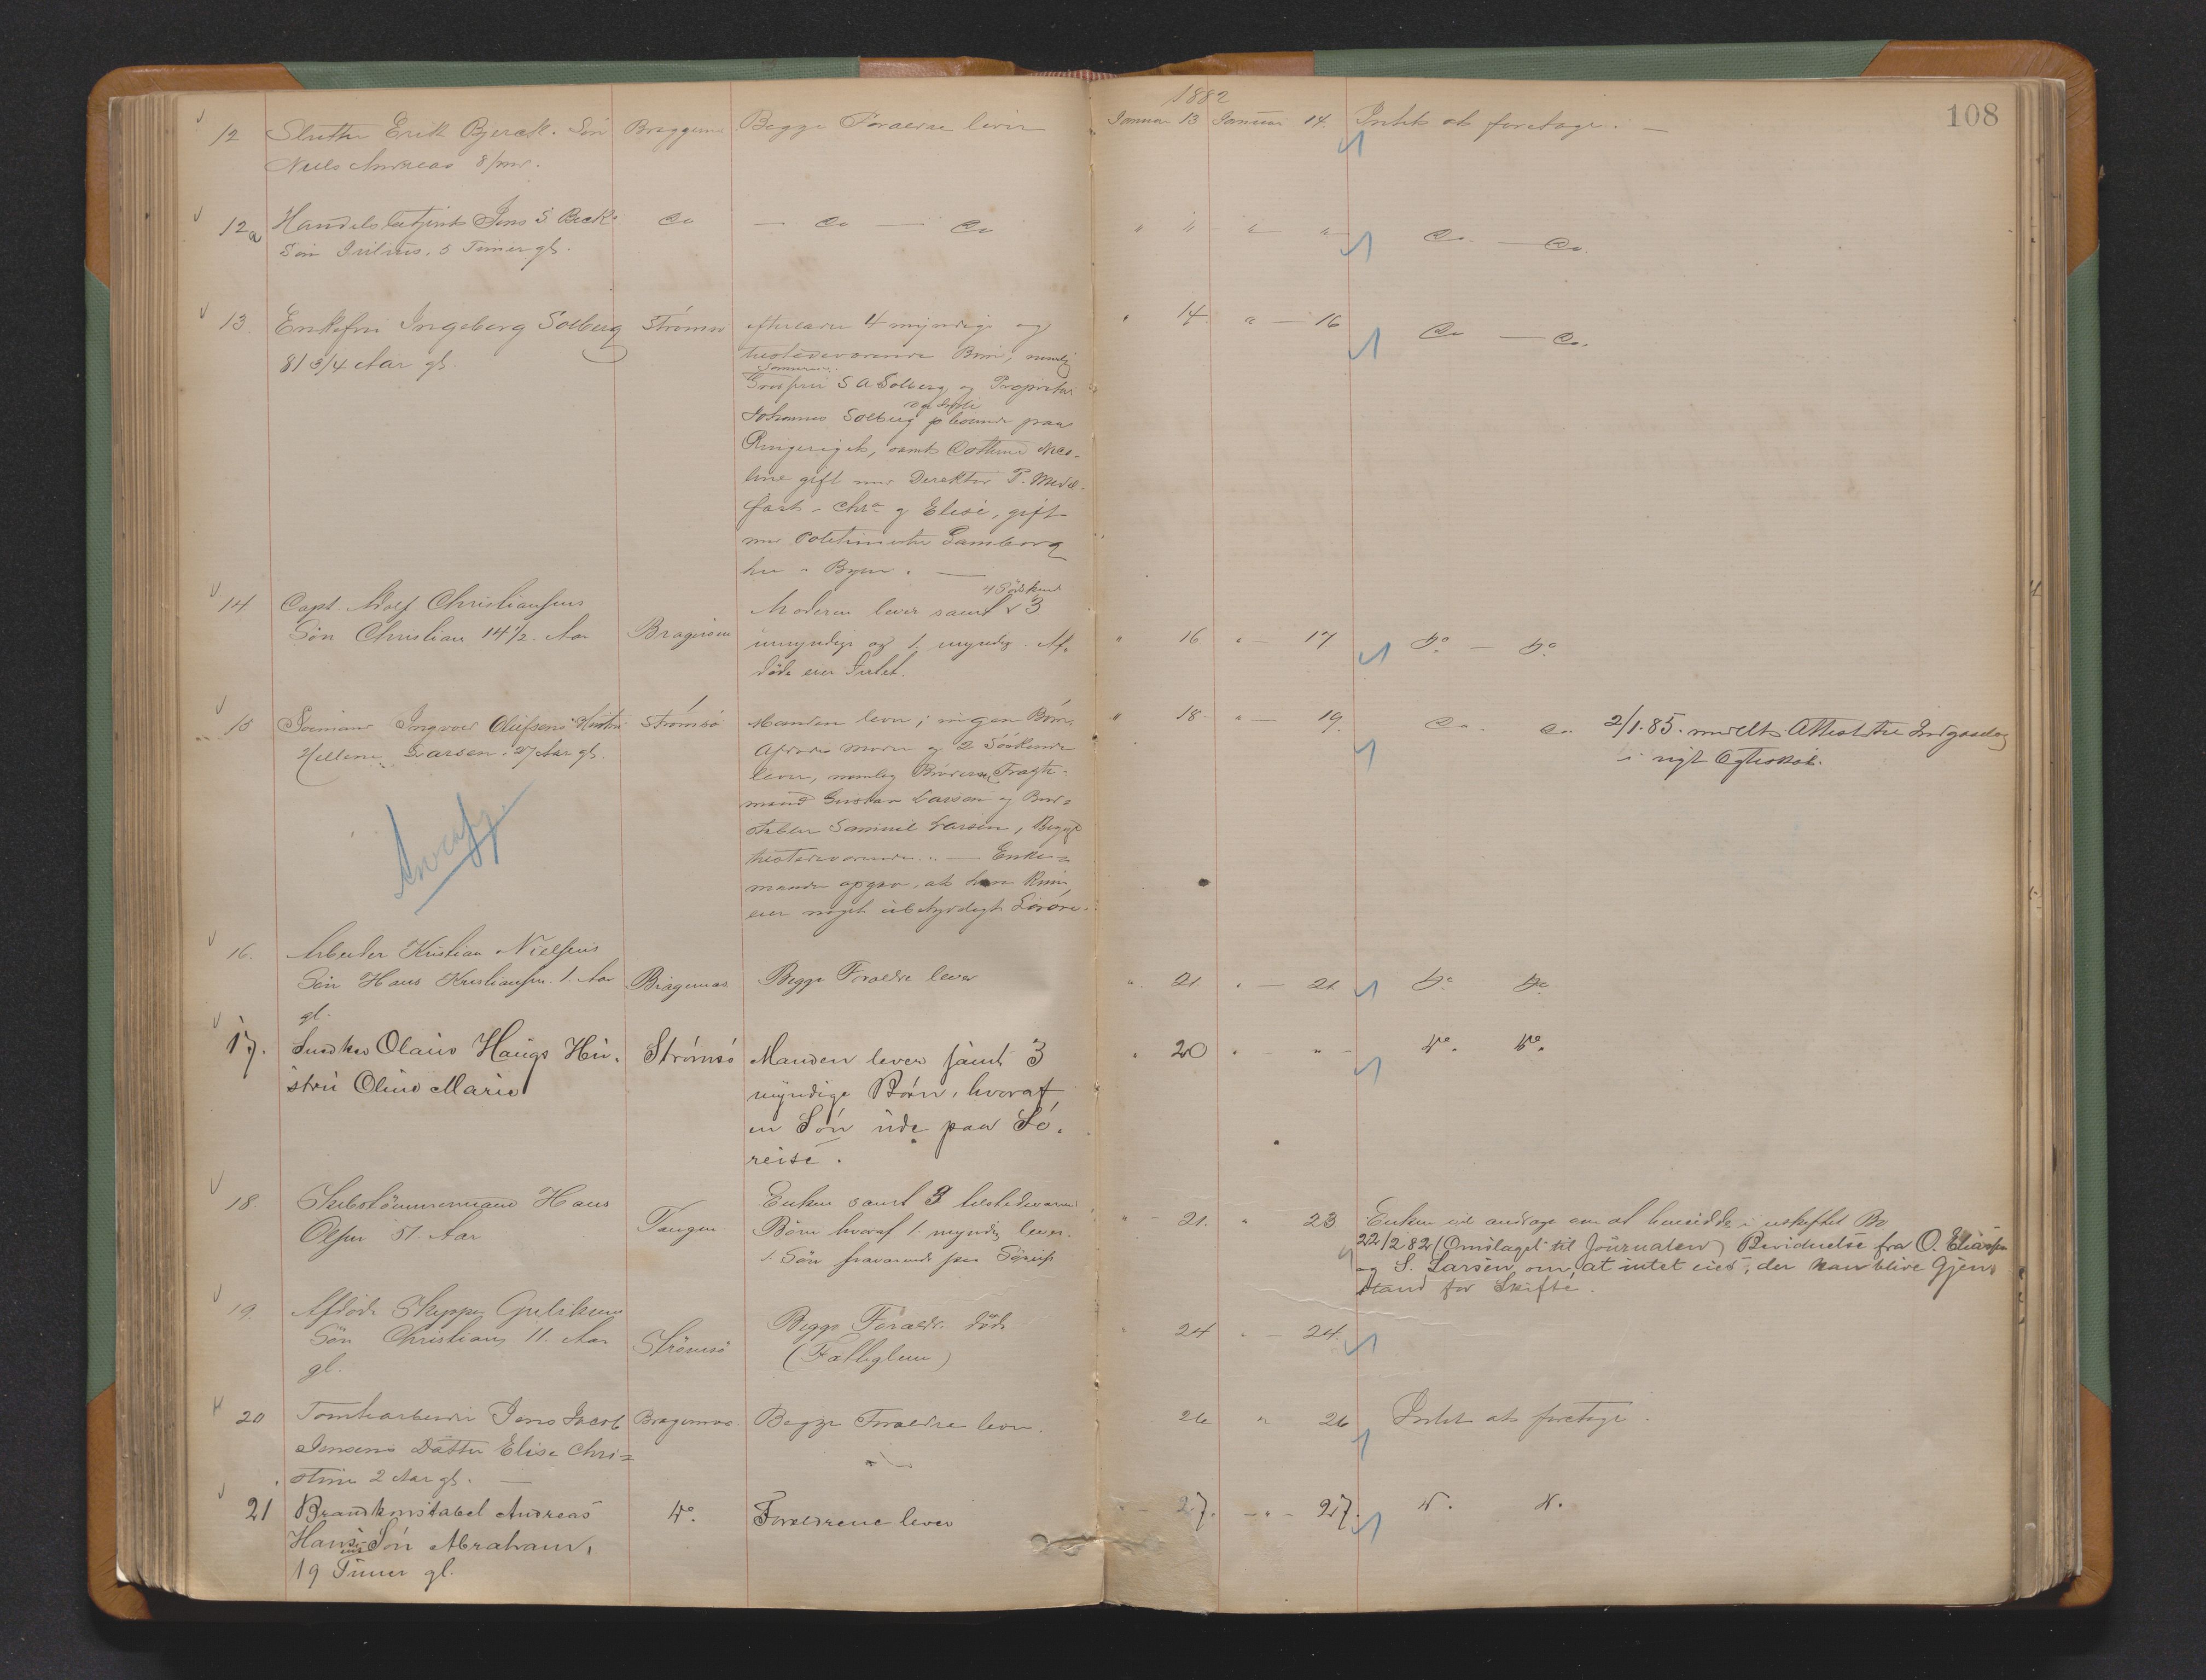 1882
108
12 Slutter Erik Bjerck. Søn Bragernæs Begge Forældre lever Januar 13 Januar 14. Intet at foretage. —
Niels Andreas 8/mnd.
12a Handelsbetjent Jens S Beck Do — Do — Do " " " " Do. — Do.
Søn Julius, 5 Timer gl.
13. Enkefru Ingeborg Solberg Strømsø efterlader 4 myndige og " 14. " — 16 Do — Do.
81 3/4 Aar gl. tilstedeværende Børn, nemlig
Sønnerne
S A Solberg, og Proprietær
Johannes Solberg boende paa
Ringeriget, samt Døttrene Nico-
line gift med Direktør P. Medel-
fart - Chra og Elise, gift
med Politimester Gamborg
her i Byen. —
14 Capt. Adolf Christiansens 4 Södskend
Søn Christian 14 1/2 Aar Bragernæs Moderen lever samt 3 " 16 " — 17 Do — Do
umyndige og 1. myndig. Af-
døde eier Intet.
15 Sømand Ingvald Olufsens Hustru Strømsø Manden lever; ingen Børn. " 18 " — 19. Do. Do. 2/1.85. meddelt Attest til Indgaaelse
Hellene Larsen. 27 Aar gl. Afdødes Moder og 2 Söskende i nyt Egteskab.
lever, nemlig Brödrene Fragt-
mand Gustav Larsen og
Samuel Larsen, Begge
tilstedeværende. — Enke-
manden opgav, at han kun
eier noget ubetydeligt Lösöre.
16. Arbeider Kristian Nielsens
Søn Hans Kristiansen. 1. Aar Bragernæs Begge Forældre lever " 21 " — 21 Do Do
gl.
17. Snedker Olaus Haugs Hu- Strømsø Manden lever samt 3 " 20 " - " - Do. Do.
stru Oline Marie myndige Børn, hvoraf
en Søn ude paa Sö-
reise.
18. Skibstömmermand Hans Enken samt 3 tilstedeværende
Olsen 51. Aar Tangen Börn hvoraf 1. myndig lever. " 21. " 23 Enken vil andrage om at hensidde i uskiftet Bo
1. Sön fraværende paa Söreise 22/2 82 (Omslaget til Journalen) Bevidnelse fra O. Eliassen
og S. Larsen om, at intet eies, der kan blive Gjen-
stand for Skifte.
19. Afdöde Skipper Guliksens
Sön Christian, 11. Aar Strömsö Begge Forældre döde " 24 " — 24.
gl. (Fattiglem)
20 Tomtearbeider Jens Jacob Bragernæs. Begge Forældre lever. 26 " 26 Intet at foretage.
Jensens Datter Elise Chri-
stine 2 Aar gl. —
21 Brandkonstabel Andreas Do. Forældrene lever 27. - " - 27. Do. Do.
Hansens Søn Abraham,
19 Timer gl.